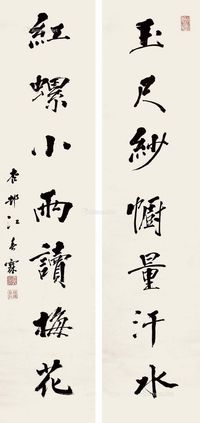 玉尺紗幮量汗水
紅螺小雨讀梅花
江春霖